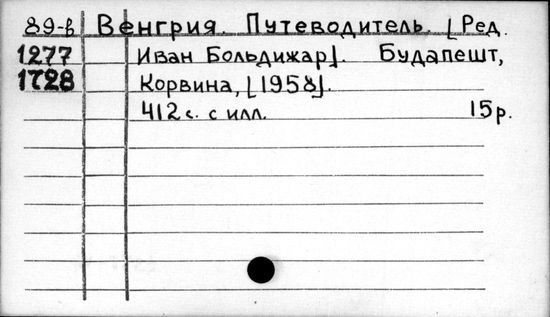 89-в Венгрия. Путеводитель. [Ред.
1277 Иван Больдижар]. Будапешт,
1728 Корвина, [1958].
412 с. с илл. 15 р.